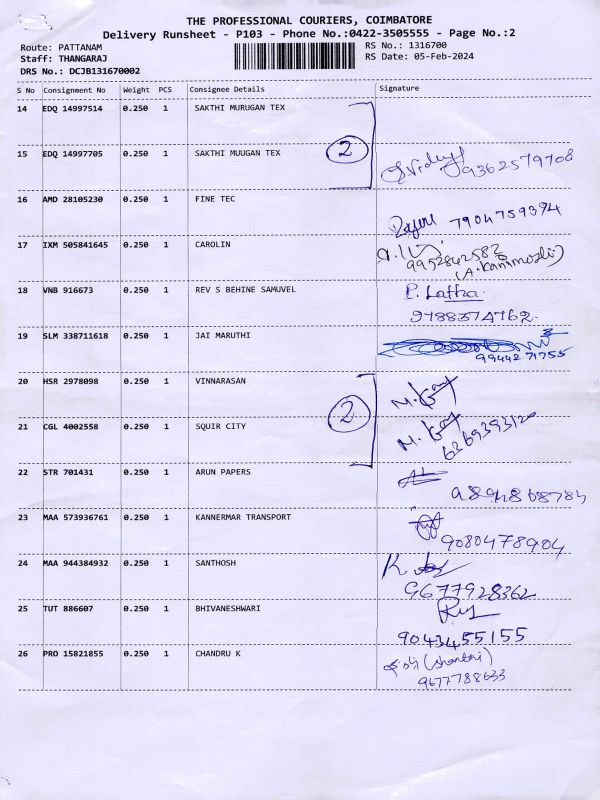 THE PROFESSIONAL COURIERS, COIMBATORE
Delivery Runsheet - P103 - Phone No.:0422-3505555 - Page No.:2
Route: PATTANAM
RS No.: 1316700
Staff: THANGARAJ
RS Date: 05-Feb-2024
DRS No.: DCJB131670002
S No Consignment No Weight PCS Consignee Details Signature
14 EDQ 14997514 0.250 1 SAKTHI MURUGAN TEX
15 EDQ 14997705 0.250 1 SAKTHI MUUGAN TEX
2
9362579708
16 AMD 28105230 0.250 1 FINE TEC
7904759394
17 IXM 505841645 0.250 1 CAROLIN
9952842582
(A. Kanimozhi)
18 VNB 916673 0.250 1 REV S BEHINE SAMUVEL
P. Latha
9788374762
19 SLM 338711618 0.250 1 JAI MARUTHI
9944271755
20 HSR 2978098 0.250 1 VINNARASAN
21 CGL 4002558 0.250 1 SQUIR CITY
2
6369393120
22 STR 701431 0.250 1 ARUN PAPERS
23 MAA 573936761 0.250 1 KANNERMAR TRANSPORT
9080478904
24 MAA 944384932 0.250 1 SANTHOSH
9677928362
25 TUT 886607 0.250 1 BHIVANESHWARI
9043455155
26 PRO 15821855 0.250 1 CHANDRU K
(Shanthi)
9677788633